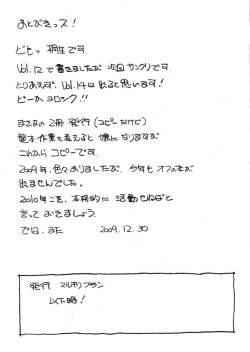 あとがきっス!
どもっ 桐生です。
Vol.12で書きましたが 次回サンクリです。
とりあえず、Vol.14は出ると思います!
どーかヨロシク!!
まさかの2冊発行(コピーだけど)
製本作業を考えると 嫌になりますが
これからコピーです。
2009年、色々ありましたが、今年もオフ本が
出ませんでした。
2010年こそ、本格的に活動せねばと
言っておきましょう。
では、また 2009.12.30
発行
以下略!